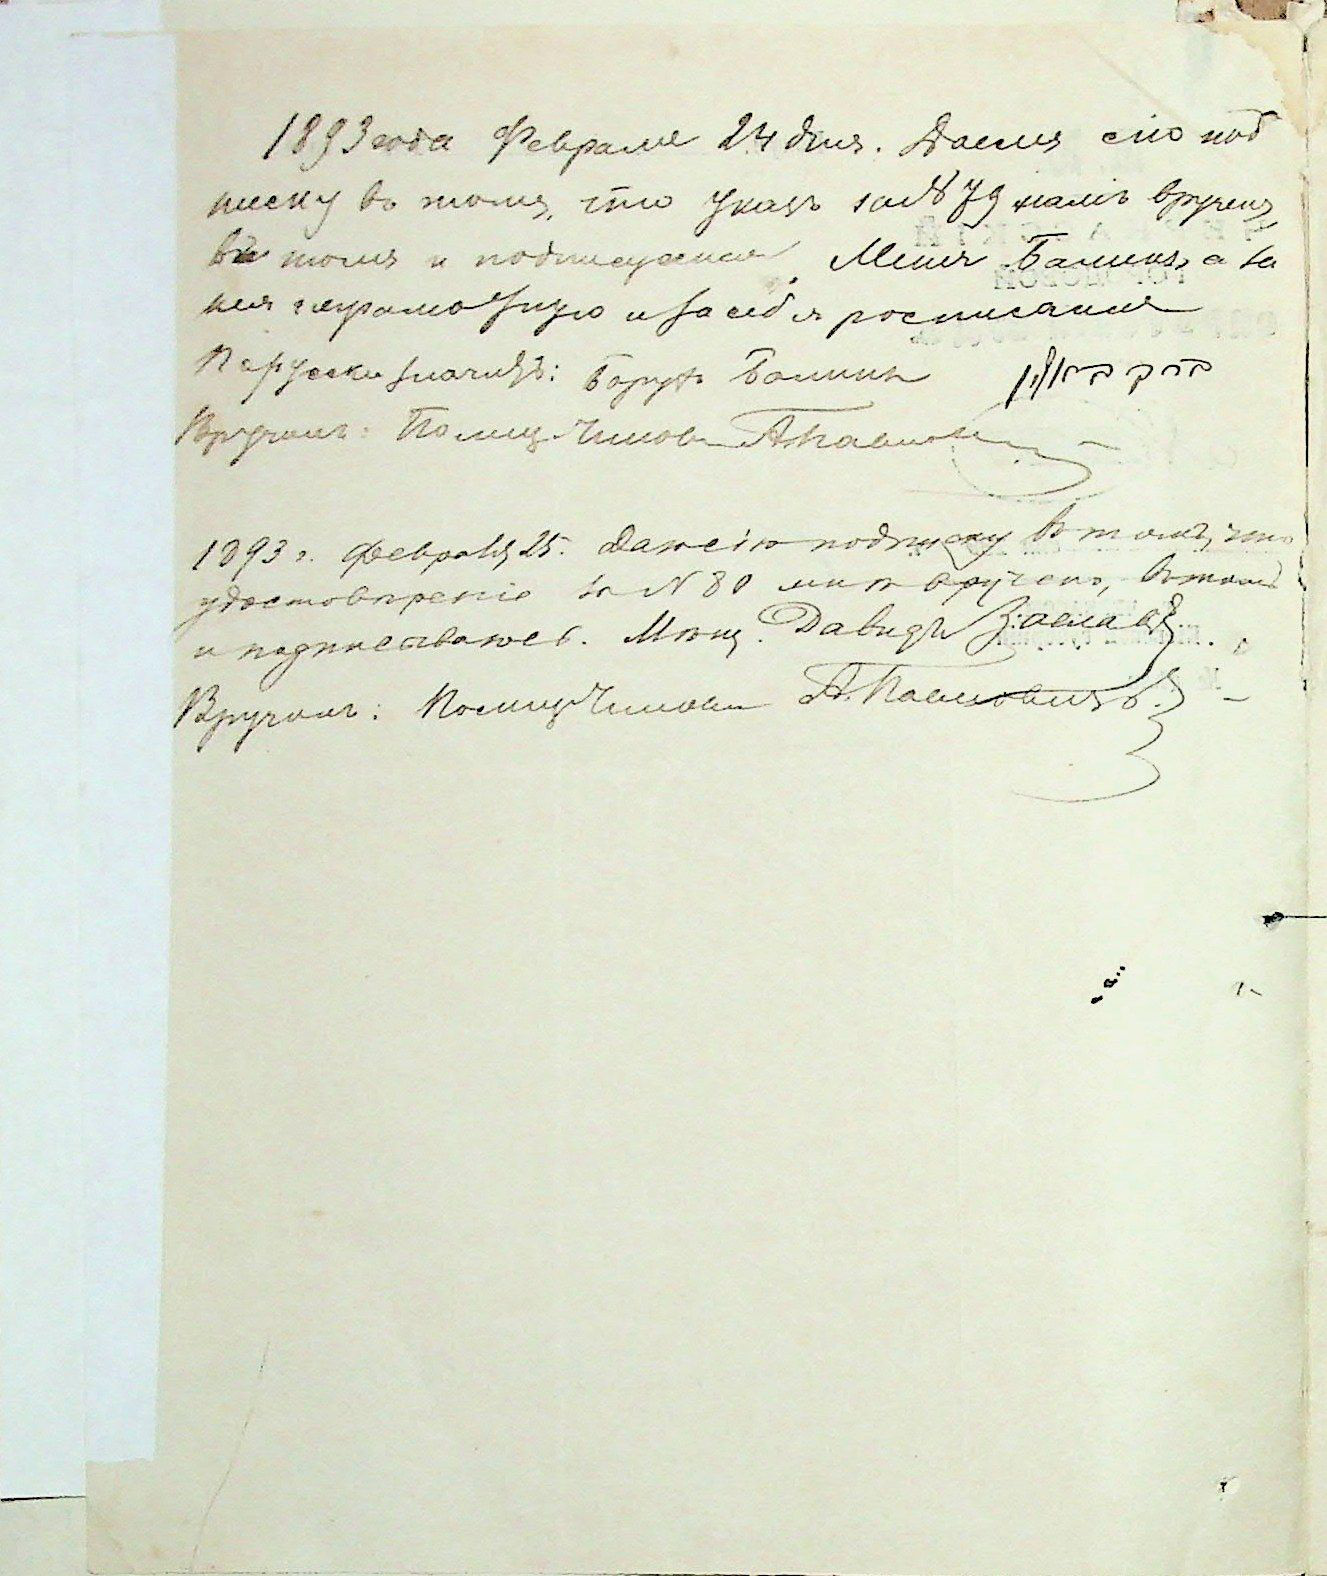 1893 года Февраля 24 дня. Даемъ сію под
писку въ томъ, что указъ за № 79 намъ врученъ,
въ томъ и подписуемся. Меня Балинъ, а за
нея неграмотную и за себя росписания
По русски значитъ: Борухъ Балинъ
Вручилъ: Полиц. Чиновн. А. Павлов
1893 г. Февраля 25. Даю сію подписку въ томъ, что
удостовѣреніе за № 80 мнѣ вручено, въ томъ
и подписываюсь. Мѣщ. Давидъ Заслав
Вручилъ: Полиц. Чиновн. А. Павловичъ